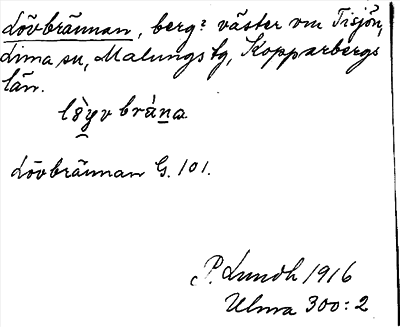 Lövbrännan, berg? väster om Tisjön,
Lima sn, Malungs tg, Kopparbergs
län.
Lövbrännan G. 101.
P. Lundh 1916
Ulma 300:2